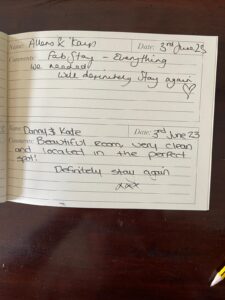 Name: Allens & Date: 3rd June 23
Comments: Fab Stay - Everything
we needed
Well definitely stay again
Name: Danny & Kate Date: 3rd June 23
Comments: Beautiful room, very clean
and located in the perfect
spot!
Definitely stay again
xxx